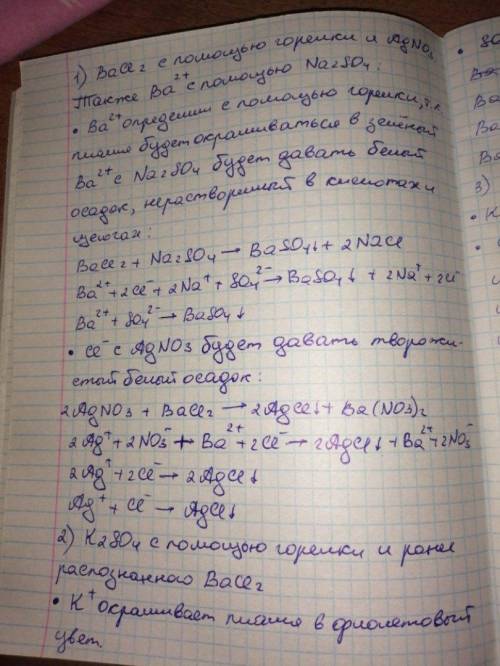 1) BaCl₂ с помощью горелки и AgNO₃
Также Ba²⁺ с помощью Na₂SO₄:
• Ba²⁺ определим с помощью горелки, т.к.
пламя будет окрашиваться в зелёный
Ba²⁺ с Na₂SO₄ будет давать белый
осадок, нерастворимый в кислотах и
щелочах:
BaCl₂ + Na₂SO₄ → BaSO₄↓ + 2NaCl
Ba²⁺ + 2Cl⁻ + 2Na⁺ + SO₄²⁻ → BaSO₄↓ + 2Na⁺ + 2Cl⁻
Ba²⁺ + SO₄²⁻ → BaSO₄↓
• Cl⁻ с AgNO₃ будет давать творожи-
стый белый осадок:
2AgNO₃ + BaCl₂ → 2AgCl↓ + Ba(NO₃)₂
2Ag⁺ + 2NO₃⁻ + Ba²⁺ + 2Cl⁻ → 2AgCl↓ + Ba²⁺ + 2NO₃⁻
2Ag⁺ + 2Cl⁻ → 2AgCl↓
Ag⁺ + Cl⁻ → AgCl↓
2) K₂SO₄ с помощью горелки и ранее
распознанного BaCl₂
• K⁺ окрашивает пламя в фиолетовый
цвет.
3)